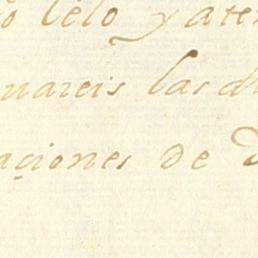 o celo y aten
uareis las di
açiones de